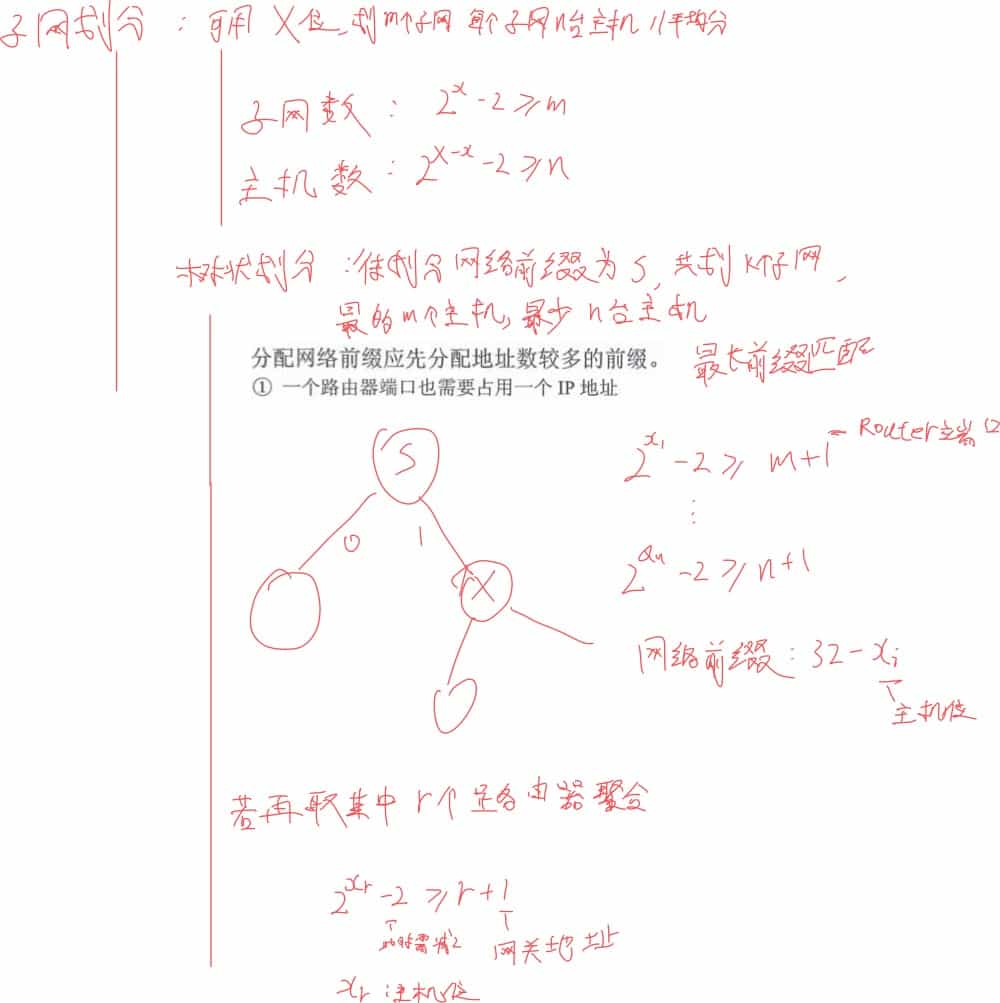 子网划分：可用X位，划m个子网 每个子网n台主机 //平均分
子网数：2^x-2≥m
主机数：2^(X-x)-2≥n
树状划分：待划分网络前缀为S，共划k个子网，
最多m个主机，最少n台主机
分配网络前缀应先分配地址数较多的前缀。
最长前缀匹配
① 一个路由器端口也需要占用一个 IP 地址
S
2^x₁-2≥m+1
Router端口
⋮
0 1
2^aₙ-2≥n+1
X
网络前缀：32-xᵢ
主机位
若再取其中r个路由器聚合
2^xᵣ-2≥r+1
此时需减2
网关地址
xᵣ：主机位